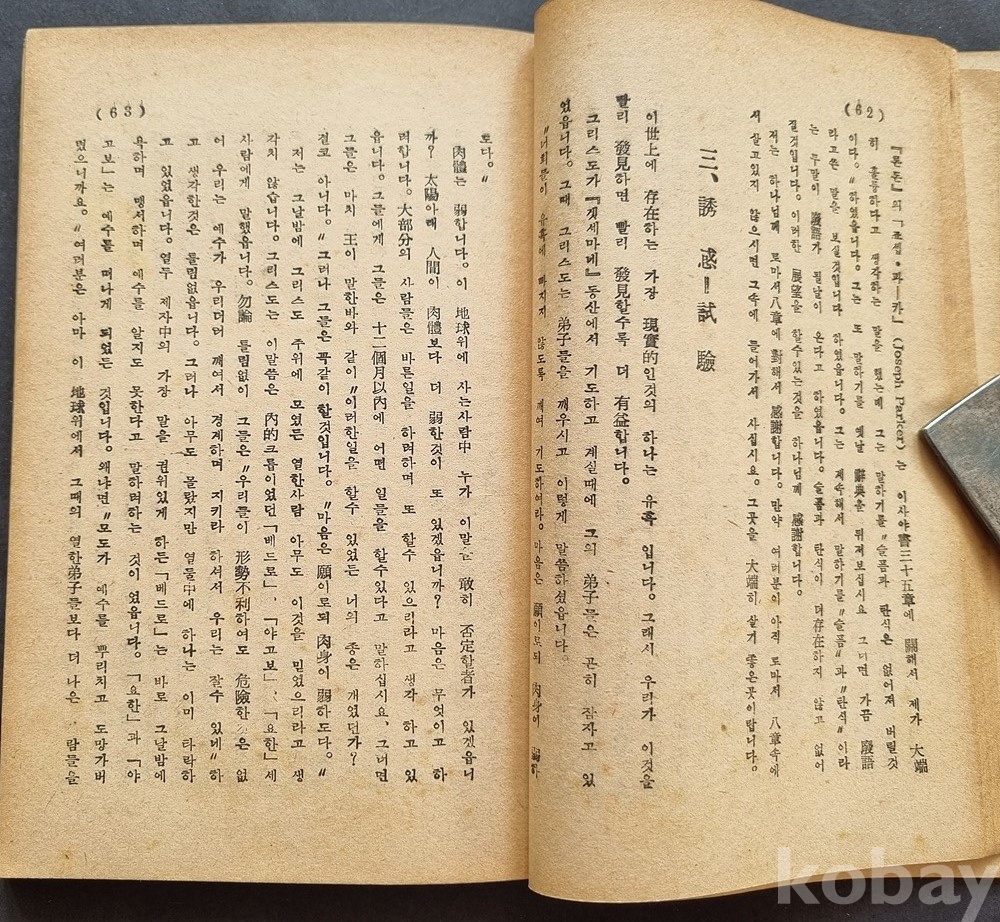 (62)
『론돈』의「쪼셉·파—카」(Joseph Parker)는 이사야書三十五章에 關해서 제가 大端
히 훌륭하다고 생각하는 말을 했는데 그는 말하기를 〃슬픔과 탄식은 없어져 버릴것
이다。〃하였읍니다。그는 또 말하기를 옛날 辭典을 뒤져보십시요 그러면 가끔 廢語
라고쓴 말을 보실것입니다 하였읍니다。그는 계속해서 말하기를 〃슬픔〃과〃탄식〃이라
는 두말이 廢語가 될날이 온다고 하였읍니다。슬픔과 탄식이 더存在하지 않고 없어
질것입니다。이러한 展望을 할수있는것을 하나님께 感謝합니다。
저는 하나님께 로마서八章에 對해서 感謝합니다。만약 여러분이 아직 로마서 八章속에
서 살고있지 않으시면 그속에 들어가서 사십시요。그곳을 大端히 살기 좋은곳이랍니다。
三、誘惑—試驗
이世上에 存在하는 가장 現實的인것의 하나는 유혹 입니다。그래서 우리가 이것을
빨리 發見하면 빨리 發見할수록 더 有益합니다。
그리스도가『겟세마네』동산에서 기도하고 계실때에 그의 弟子들은 곤히 잠자고 있
었읍니다。그때 그리스도는 弟子들을 깨우시고 이렇게 말씀하셨읍니다
〃너희들이 유혹에 빠지지 않도록 깨여 기도하여라。마음은 願이로되 肉身이 弱하
(63)
도다。〃
肉體는 弱합니다。이 地球위에 사는사람中 누가 이말을 敢히 否定할者가 있겠읍니
까? 太陽아래 人間이 肉體보다 더 弱한것이 또 있겠읍니까? 마음은 무엇이고 하
려합니다。大部分의 사람들은 바른일을 하려하며 또 할수 있으리라고 생각 하고 있
읍니다。그들에게 그들은 十二個月以內에 어떤 일들을 할수있다고 말하십시요、그러면
그들은 마치 王이 말한바와 같이〃이러한일을 할수 있었든 너의 종은 개였던가?
결코 아니다。〃그러나 그들은 꼭같이 할것입니다。〃마음은 願이로되 肉身이 弱하도다。〃
저는 그날밤에 그리스도 주위에 모였든 열한사람 아무도 이것을 믿었으리라고 생
각치 않습니다。그리스도는 이말씀은 內的크릅이였던「베드로」、「야고보」、「요한」세
사람에게 말했읍니다。勿論 틀림없이 그들은〃우리들이 形勢不利하여도 危險한 은 없
어 우리는 예수가 우리더러 깨여서 경계하며 지키라 하셔서 우리는 잘수 있네〃하
고 생각한것은 틀림없읍니다。그러나 아무도 몰랐지만 열둘中에 하나는 이미 타락하
고 있었읍니다。열두 제자中의 가장 말을 권위있게 하든「베드로」는 바로 그날밤에
욕하며 맹서하며 예수를 알지도 못한다고 말하려하는 것이 였읍니다。「요한」과「야
고보」는 예수를 떠나게 되었든 것입니다。왜냐면〃모도가 예수를 뿌리치고 도망가버
렸으니까요。〃여러분은 아마 이 地球위에서 그때의 열한弟子들보다 더 나은 람들을
kobay